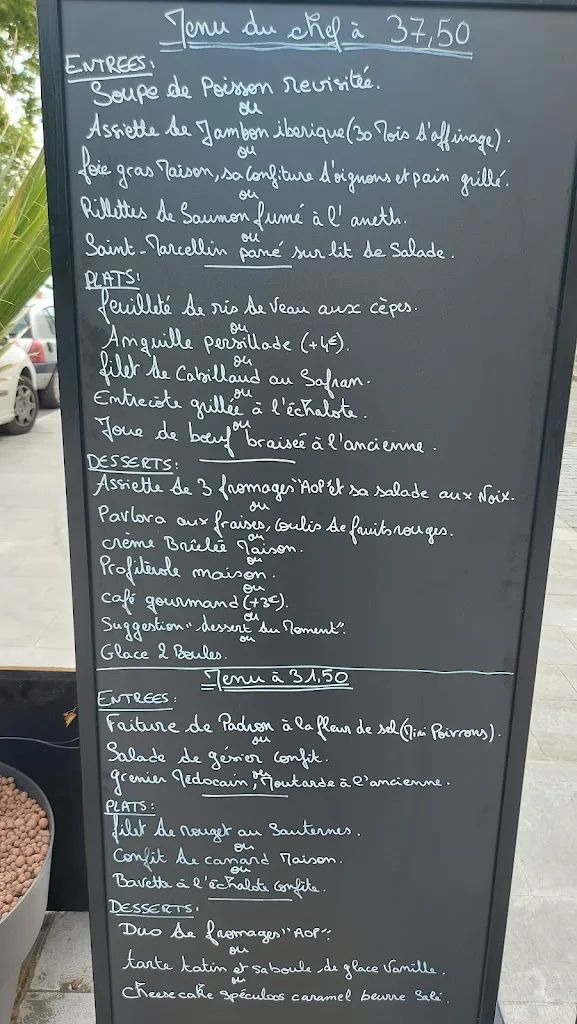 Menu du chef à 37,50
ENTREES:
Soupe de Poisson revisitée.
ou
Assiette de Jambon iberique (30 Mois d'affinage).
ou
foie gras Maison, sa Confiture d'oignons et pain grillé.
ou
Rillettes de Saumon fumé à l'aneth.
ou
Saint-Marcellin pané sur lit de Salade.
PLATS:
feuilleté de ris de Veau aux cèpes.
ou
Anguille persillade (+4€).
ou
filet de Cabillaud au Safran.
ou
Entrecôte grillée à l'échalote.
ou
Joue de bœuf braisée à l'ancienne.
DESSERTS:
Assiette de 3 fromages "AOP" et sa salade aux Noix.
ou
Pavlova aux fraises, coulis de fruits rouges.
ou
crème Brûlée Maison.
ou
Profiterole maison.
ou
café gourmand (+3€).
ou
Suggestion "dessert du Moment".
ou
Glace 2 Boules.
Menu à 31,50
ENTREES:
Friture de Padron à la fleur de sel (Mini Poivrons).
ou
Salade de gésier confit.
ou
grenier Médocain, Moutarde à l'ancienne.
PLATS:
filet de rouget au Sauternes.
ou
Confit de canard Maison.
ou
Bavette à l'échalote confite.
DESSERTS:
Duo de fromages "AOP".
ou
tarte tatin et sa boule de glace Vanille.
ou
cheesecake spéculoos caramel beurre Salé.